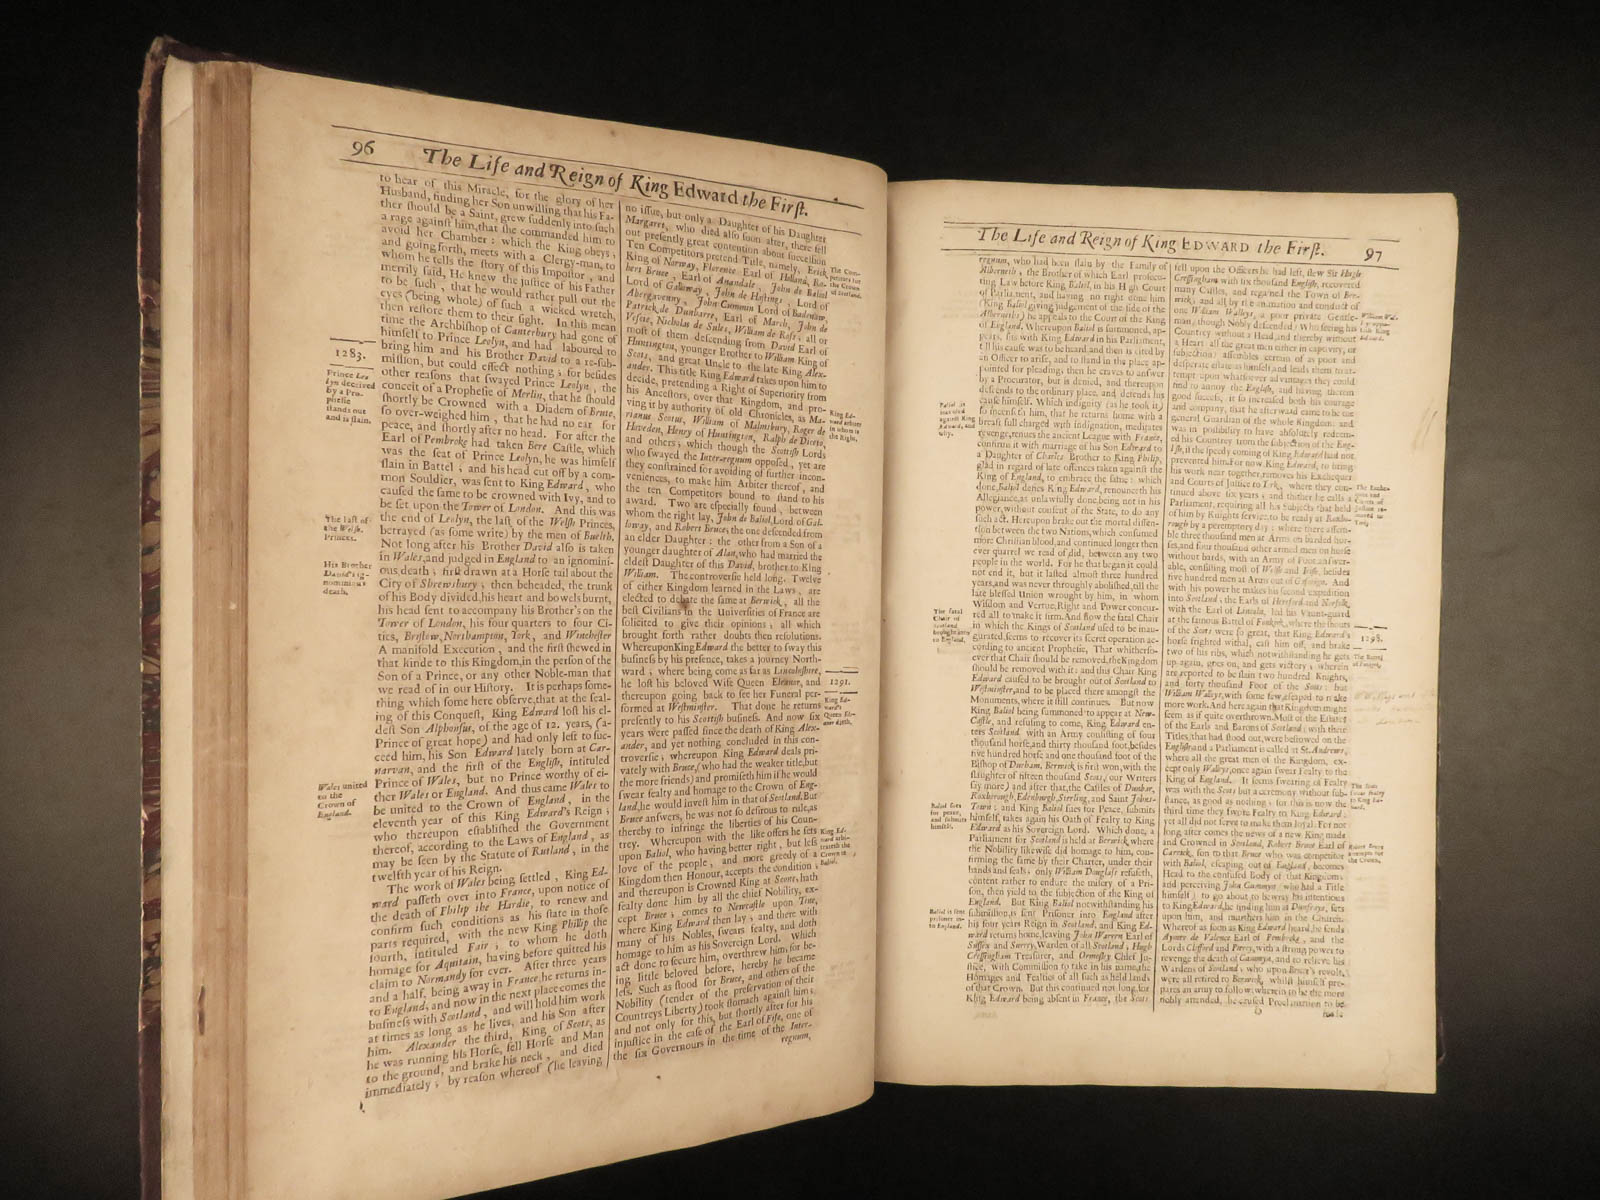 96
The Life and Reign of King Edward the Firſt.
to hear of this Miracle, for the glory of her
Husband, finding her Son unwilling that his Fa-
ther ſhould be a Saint, grew ſuddenly into ſuch
a rage againſt him, that ſhe commanded him to
avoid her Chamber: which the King obeys;
and going forth, meets with a Clergy-man, to
whom he tells the ſtory of this Impoſtor, and
merrily ſaid, He knew the juſtice of his Father
to be ſuch, that he would rather pull out the
eyes (being whole) of ſuch a wicked wretch,
then reſtore them to their ſight. In this mean
time the Archbiſhop of Canterbury had gone of
himſelf to Prince Leolyn, and had laboured to
bring him and his Brother David to a re-ſub-
miſſion, but could effect nothing; for beſides
other reaſons that ſwayed Prince Leolyn, the
conceit of a Propheſie of Merlin, that he ſhould
ſhortly be Crowned with a Diadem of Brute,
ſo over-weighed him, that he had no ear for
peace, and ſhortly after no head. For after the
Earl of Pembroke had taken Bere Caſtle, which
was the ſeat of Prince Leolyn, he was himſelf
ſlain in Battel; and his head cut off by a com-
mon Souldier, was ſent to King Edward, who
cauſed the ſame to be crowned with Ivy, and to
be ſet upon the Tower of London. And this was
the end of Leolyn, the laſt of the Welſh Princes,
betrayed (as ſome write) by the men of Buelth.
Not long after his Brother David alſo is taken
in Wales, and judged in England to an ignomini-
ous death; firſt drawn at a Horſe tail about the
City of Shrewsbury; then beheaded, the trunk
of his Body divided, his heart and bowels burnt,
his head ſent to accompany his Brother's on the
Tower of London, his four quarters to four Ci-
ties, Briſtow, Northampton, York, and Wincheſter
A manifold Execution, and the firſt ſhewed in
that kinde to this Kingdom, in the perſon of the
Son of a Prince, or any other Noble-man that
we read of in our Hiſtory. It is perhaps ſome-
thing which ſome here obſerve, that at the ſeal-
ing of this Conqueſt, King Edward loſt his el-
deſt Son Alphonſus, of the age of 12. years, (a-
Prince of great hope) and had only left to ſuc-
ceed him, his Son Edward lately born at Car-
narvan, and the firſt of the Engliſh, intituled
Prince of Wales, but no Prince worthy of ei-
ther Wales or England. And thus came Wales to
be united to the Crown of England, in the
eleventh year of this King Edward's Reign;
who thereupon eſtabliſhed the Government
thereof, according to the Laws of England, as
may be ſeen by the Statute of Rutland, in the
twelfth year of his Reign.
The work of Wales being ſettled, King Ed-
ward paſſeth over into France, upon notice of
the death of Philip the Hardie, to renew and
confirm ſuch conditions as his ſtate in thoſe
parts required, with the new King Philip the
fourth, intituled Fair; to whom he doth
homage for Aquitain, having before quitted his
claim to Normandy for ever. After three years
and a half, being away in France, he returns in-
to England, and now in the next place comes the
buſineſs with Scotland, and will hold him work
at times as long as he lives, and his Son after
him. Alexander the third, King of Scots, as
he was running his Horſe, fell Horſe and Man
to the ground, and brake his neck, and died
immediately; by reaſon whereof (he leaving
1283.
Prince Leo-
lyn deceived
by a Pro-
pheſie
ſtands out
and is ſlain.
The laſt of
the Welſh
Princes.
His Brother
David's ig-
nominious
death.
Wales united
to the
Crown of
England.
no iſſue, but only a Daughter of his Daughter
Margaret, who died alſo ſoon after, there fell
out preſently great contention about ſucceſſion
Ten Competitors pretend Title, namely, Erick
King of Norway, Florence Earl of Holland, Ro-
bert Bruce, Earl of Anandale, John de Baliol
Lord of Galloway, John de Haſtings, Lord of
Abergavenny, John Cummin Lord of Badenaw,
Patrick de Dunbarre, Earl of March, John de
Veſcie, Nicholas de Sules, William de Roſs; all or
moſt of them deſcending from David Earl of
Huntington, younger Brother to William King of
Scots, and great Uncle to the late King Alex-
ander. This title King Edward takes upon him to
decide, pretending a Right of Superiority from
his Anceſtors, over that Kingdom, and pro-
ving it by authority of old Chronicles, as Ma-
rianus Scotus, William of Malmsbury, Roger de
Hoveden, Henry of Huntington, Ralph de Diceto,
and others; which though the Scottiſh Lords
who ſwayed the Interregnum oppoſed, yet are
they conſtrained for avoiding of further incon-
veniences, to make him Arbiter thereof, and
the ten Competitors bound to ſtand to his
award. Two are eſpecially found, between
whom the right lay, John de Baliol, Lord of Gal-
loway, and Robert Bruce, the one deſcended from
an elder Daughter: the other from a Son of a
younger daughter of Alan, who had married the
eldeſt Daughter of this David, brother to King
William. The controverſie held long. Twelve
of either Kingdom learned in the Laws, are
elected to debate the ſame at Berwick, all the
beſt Civilians in the Univerſities of France are
ſolicited to give their opinions; all which
brought forth rather doubts then reſolutions.
Whereupon King Edward the better to ſway this
buſineſs by his preſence, takes a journey North-
ward; where being come as far as Lincolnſhire,
he loſt his beloved Wife Queen Eleanor, and
thereupon going back to ſee her Funeral per-
formed at Weſtminſter. That done he returns
preſently to his Scottiſh buſineſs. And now ſix
years were paſſed ſince the death of King Alex-
ander, and yet nothing concluded in this con-
troverſie; whereupon King Edward deals pri-
vately with Bruce, (who had the weaker title, but
the more friends) and promiſeth him if he would
ſwear fealty and homage to the Crown of Eng-
land, he would inveſt him in that of Scotland. But
Bruce anſwers, he was not ſo deſirous to rule, as
thereby to infringe the liberties of his Coun-
trey. Whereupon with the like offers he ſets
upon Baliol, who having better right, but leſs
love of the people, and more greedy of a
Kingdom then Honour, accepts the condition;
and thereupon is Crowned King at Scone, hath
fealty done him by all the chief Nobility, ex-
cept Bruce; comes to Newcaſtle upon Tine,
where King Edward then lay; and there with
many of his Nobles, ſwears fealty, and doth
homage to him as his Sovereign Lord. Which
act done to ſecure him, overthrew him; for be-
ing little beloved before, hereby he became
leſs. Such as ſtood for Bruce, and others of the
Nobility (tender of the preſervation of their
Countreys Liberty) took ſtomach againſt him;
and not only for this, but ſhortly after for his
injuſtice in the caſe of the Earl of Fife, one of
the ſix Governours in the time of the Inter-
regnum,
The Com-
petitors for
the Crown
of Scotland.
King Ed-
ward arbiter
in whom is
the Right.
1291.
King Ed-
ward's
Queen Ele-
anor dieth.
King Ed-
ward arbi-
trateth the
Crown to
Baliol.
The Life and Reign of King EDWARD the Firſt.
97
regnum, who had been ſlain by the Family of
Alberneth; the Brother of which Earl proſecu-
ting Law before King Baliol, in his High Court
of Parliament, and having no right done him
(King Baliol giving judgement of the ſide of the
Alberneths) he appeals to the Court of the King
of England. Whereupon Baliol is ſummoned, ap-
pears, ſits with King Edward in his Parliament,
till his cauſe was to be heard, and then is cited by
an Officer to ariſe, and to ſtand in the place ap-
pointed for pleading; then he craves to anſwer
by a Procurator, but is denied, and thereupon
deſcends to the ordinary place, and defends his
cauſe himſelf. Which indignity (as he took it)
ſo incenſeth him, that he returns home with a
breaſt full charged with indignation, meditates
revenge, renues the ancient League with France,
confirms it with marriage of his Son Edward to
a Daughter of Charles Brother to King Philip,
glad in regard of late offences taken againſt the
King of England, to embrace the ſame: which
done, Baliol defies King Edward, renounceth his
Allegiance, as unlawfully done, being not in his
power, without conſent of the State, to do any
ſuch act. Hereupon brake out the mortal diſſen-
ſion between the two Nations, which conſumed
more Chriſtian blood, and continued longer then
ever quarrel we read of did, between any two
people in the world. For he that began it could
not end it, but it laſted almoſt three hundred
years, and was never throughly aboliſhed, till the
late bleſſed Union wrought by him, in whom
Wiſdom and Vertue, Right and Power concur-
red all to make it firm. And now the fatal Chair
in which the Kings of Scotland uſed to be inau-
gurated, ſeems to recover its ſecret operation ac-
cording to ancient Propheſie, That whitherſo-
ever that Chair ſhould be removed, the Kingdom
ſhould be removed with it; and this Chair King
Edward cauſed to be brought out of Scotland to
Weſtminſter, and to be placed there amongſt the
Monuments, where it ſtill continues. But now
King Baliol being ſummoned to appear at New-
Caſtle, and refuſing to come, King Edward en-
ters Scotland with an Army conſiſting of four
thouſand horſe, and thirty thouſand foot, beſides
five hundred horſe, and one thouſand foot of the
Biſhop of Durham. Berwick is firſt won, with the
ſlaughter of fifteen thouſand Scots, (our Writers
ſay more) and after that, the Caſtles of Dunbar,
Roxborough, Edenburgh, Sterling, and Saint Johns-
Town: and King Baliol ſues for Peace, ſubmits
himſelf, takes again his Oath of Fealty to King
Edward as his Sovereign Lord. Which done, a
Parliament for Scotland is held at Berwick, where
the Nobility likewiſe did homage to him, con-
firming the ſame by their Charter, under their
hands and ſeals; only William Douglaſs refuſeth,
content rather to endure the miſery of a Pri-
ſon, then yield to the ſubjection of the King of
England. But King Baliol notwithſtanding his
ſubmiſſion, is ſent Priſoner into England after
his four years Reign in Scotland, and King Ed-
ward returns home, leaving John Warren Earl of
Suſſex and Surrey, Warden of all Scotland; Hugh
Creſſingham Treaſurer, and Ormeſley Chief Ju-
ſtice, with Commiſſion to take in his name, the
Homages and Fealties of all ſuch as held lands
of that Crown. But this continued not long, for
King Edward being abſent in France, the Scots
Baliol is
incenſed
againſt King
Edward, and
why.
The fatal
Chair of
Scotland
brought into
England.
Baliol ſues
for peace,
and ſubmits
himſelf.
Baliol is ſent
priſoner in-
to England.
fell upon the Officers he had left, ſlew Sir Hugh
Creſſingham with ſix thouſand Engliſh, recovered
many Caſtles, and regained the Town of Ber-
wick; and all by the animation and conduct of
one William Walleys, a poor private Gentle-
man, though Nobly deſcended; who ſeeing his
Countrey without a Head, and thereby without
a Heart (all the great men either in captivity, or
ſubjection) aſſembles certain of as poor and
deſperate eſtate as himſelf, and leads them to at-
tempt upon whatſoever advantages they could
find to annoy the Engliſh, and having therein
good ſucceſs, it ſo increaſed both his courage
and company, that he afterward came to be the
general Guardian of the whole Kingdom: and
was in poſſibility to have abſolutely redeem-
ed his Countrey from the ſubjection of the Eng-
liſh, if the ſpeedy coming of King Edward had not
prevented him. For now King Edward, to bring
his work near together, removes his Exchequer
and Courts of Juſtice to York, where they con-
tinued above ſix years; and thither he calls a
Parliament, requiring all his Subjects that held
of him by Knights ſervice, to be ready at Roxbo-
rough by a peremptory day: where there aſſem-
ble three thouſand men at Arms on barded hor-
ſes, and four thouſand other armed men on horſe
without bards, with an Army of Foot anſwer-
able, conſiſting moſt of Welſh and Iriſh, beſides
five hundred men at Arms out of Gaſcoign. And
with this power he makes his ſecond expedition
into Scotland; the Earls of Hereford and Norfolk,
with the Earl of Lincoln, led his Vaunt-guard
at the famous Battel of Fonkirk, where the ſhouts
of the Scots were ſo great, that King Edward's
horſe frighted withal, caſt him off, and brake
two of his ribs, which notwithſtanding he gets
up again, goes on, and gets victory; wherein
are reported to be ſlain two hundred Knights,
and forty thouſand Foot of the Scots: but
William Walleys, with ſome few, eſcaped to make
more work. And here again that Kingdom might
ſeem as if quite overthrown. Moſt of the Eſtates
of the Earls and Barons of Scotland, with their
Titles, that had ſtood out, were beſtowed on the
Engliſh: and a Parliament is called at St. Andrews,
where all the great men of the Kingdom, ex-
cept only Walleys, once again ſwear Fealty to the
King of England. It ſeems ſwearing of Fealty
was with the Scots but a ceremony without ſub-
ſtance, as good as nothing; for this is now the
third time they ſwore Fealty to King Edward:
yet all did not ſerve to make them loyal: For not
long after comes the news of a new King made
and Crowned in Scotland, Robert Bruce Earl of
Carrick, ſon to that Bruce who was competitor
with Baliol, eſcaping out of England, becomes
Head to the confuſed Body of that Kingdom;
and perceiving John Cummyn who had a Title
himſelf; to go about to bewray his intentions
to King Edward, he finding him at Dunfrays, ſets
upon him, and murthers him in the Church.
Whereof as ſoon as King Edward heard, he ſends
Aymer de Valence Earl of Pembroke, and the
Lords Clifford and Percy, with a ſtrong power to
revenge the death of Cummyn, and to relieve his
Wardens of Scotland; who upon Bruce's revolt,
were all retired to Berwick, whilſt himſelf pre-
pares an army to follow; wherein to be the more
nobly attended, he cauſed Proclamation to be
William Wal-
leys oppo-
ſeth King
Edward.
The Exche-
quer and
Courts of
Juſtice re-
moved to
York.
1298.
The Battel
of Fonkirk.
The Scots
ſwear fealty
to King Ed-
ward.
Robert Bruce
attempts for
the Crown.